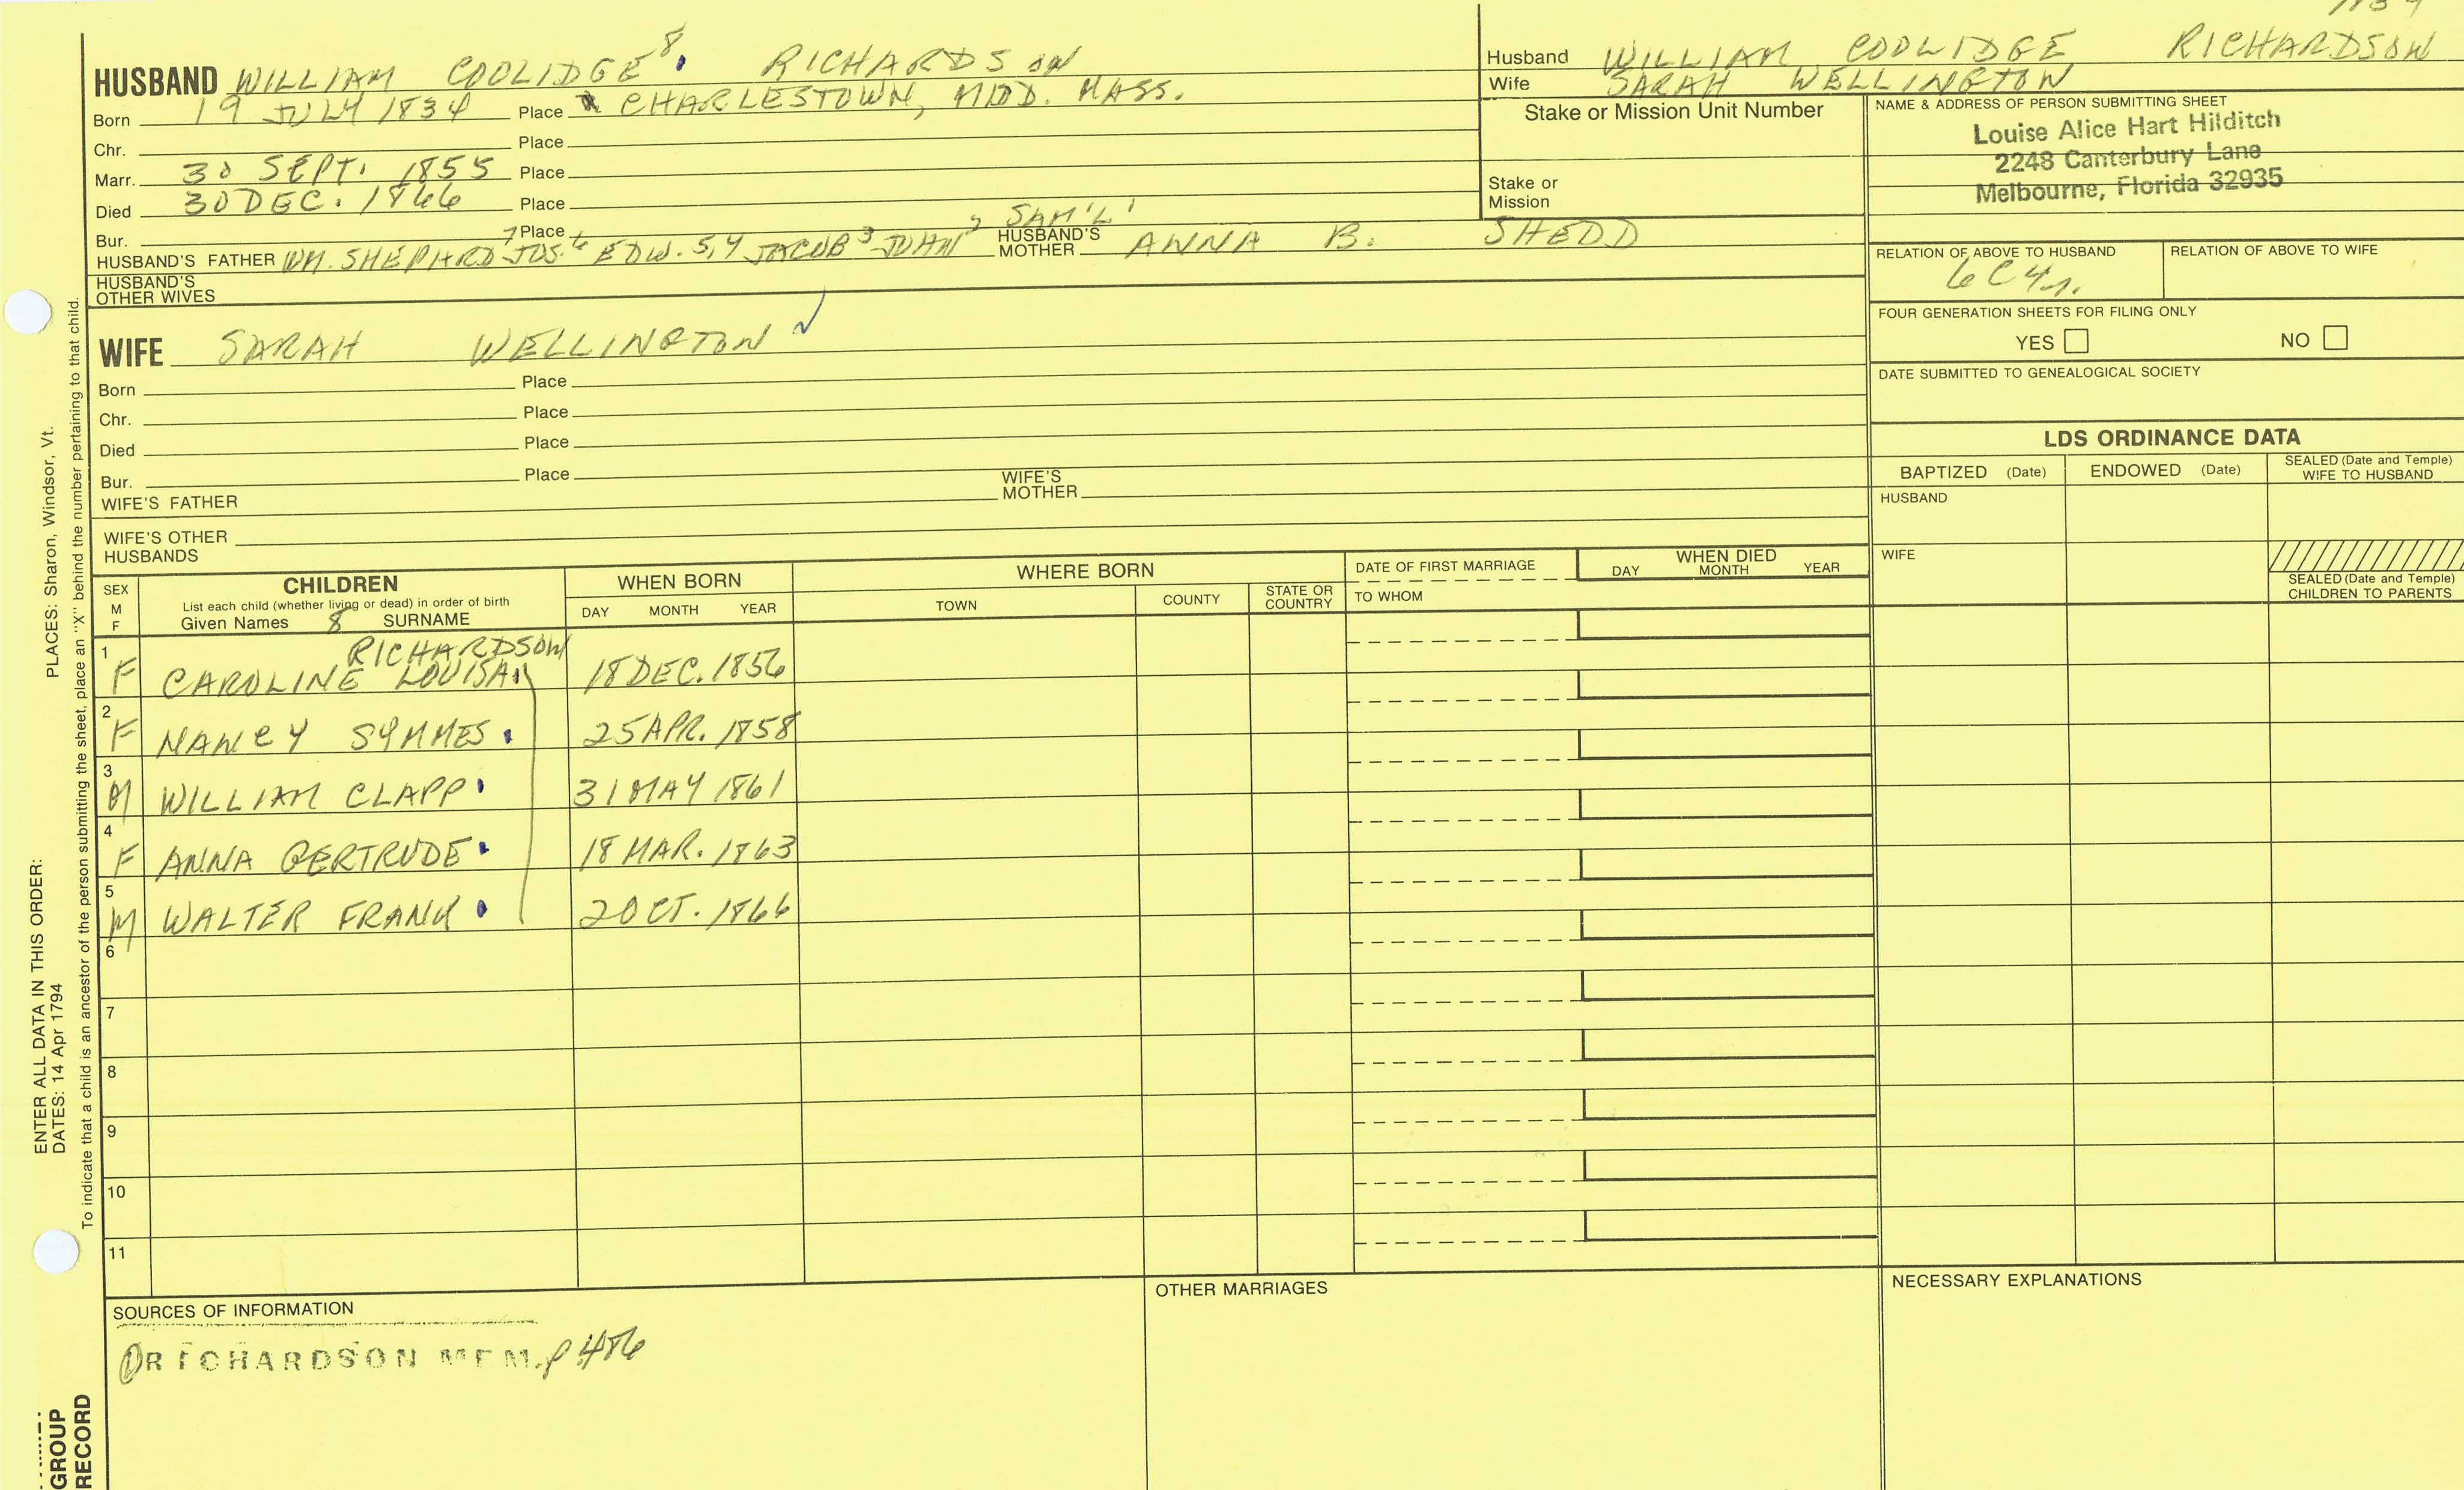 1834
HUSBAND WILLIAM COOLIDGE 8. RICHARDSON
Born 19 JULY 1834 Place CHARLESTOWN, MIDD. MASS.
Chr. Place
Marr. 30 SEPT. 1855 Place
Died 30 DEC. 1866 Place
Bur. Place
HUSBAND'S FATHER WM. SHEPHARD 7 JOS. 6 EDW. 5,4 JACOB 3 JOHN 2 SAM'L 1 HUSBAND'S MOTHER ANNA B. SHEDD
HUSBAND'S
OTHER WIVES
Husband WILLIAM COOLIDGE RICHARDSON
Wife SARAH WELLINGTON
Stake or Mission Unit Number
Stake or
Mission
NAME & ADDRESS OF PERSON SUBMITTING SHEET
Louise Alice Hart Hilditch
2248 Canterbury Lane
Melbourne, Florida 32935
RELATION OF ABOVE TO HUSBAND RELATION OF ABOVE TO WIFE
6C4r.
FOUR GENERATION SHEETS FOR FILING ONLY
YES NO
DATE SUBMITTED TO GENEALOGICAL SOCIETY
WIFE SARAH WELLINGTON
Born Place
Chr. Place
Died Place
Bur. Place
WIFE'S FATHER WIFE'S MOTHER
WIFE'S OTHER
HUSBANDS
LDS ORDINANCE DATA
BAPTIZED (Date) ENDOWED (Date) SEALED (Date and Temple) WIFE TO HUSBAND
HUSBAND
WIFE
SEALED (Date and Temple)
CHILDREN TO PARENTS
SEX
M
F
CHILDREN
List each child (whether living or dead) in order of birth
Given Names 8 SURNAME
WHEN BORN
DAY MONTH YEAR
WHERE BORN
TOWN COUNTY STATE OR COUNTRY
DATE OF FIRST MARRIAGE
TO WHOM
WHEN DIED
DAY MONTH YEAR
RICHARDSON
1 F CAROLINE LOUISA 18 DEC. 1856
2 F NANCY SYMMES. 25 APR. 1858
3 M WILLIAM CLAPP. 31 MAY 1861
4 F ANNA GERTRUDE. 18 MAR. 1863
5 M WALTER FRANK. 2 OCT. 1866
6
7
8
9
10
11
SOURCES OF INFORMATION
① RICHARDSON MEM. p 486
OTHER MARRIAGES
NECESSARY EXPLANATIONS
ENTER ALL DATA IN THIS ORDER:
DATES: 14 Apr 1794
PLACES: Sharon, Windsor, Vt.
To indicate that a child is an ancestor of the person submitting the sheet, place an "X" behind the number pertaining to that child.
GROUP
RECORD